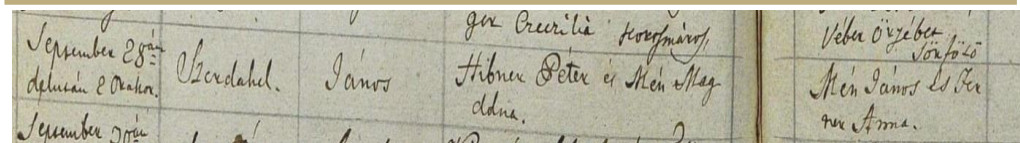 ger Crecrilia
Veber Örzébet
September 28án
délután 2 Orakor.
Szerdahel.
János
Hibner Péter és Mén Mag
ddna.
Mén János és Fer
ner Anna.
September